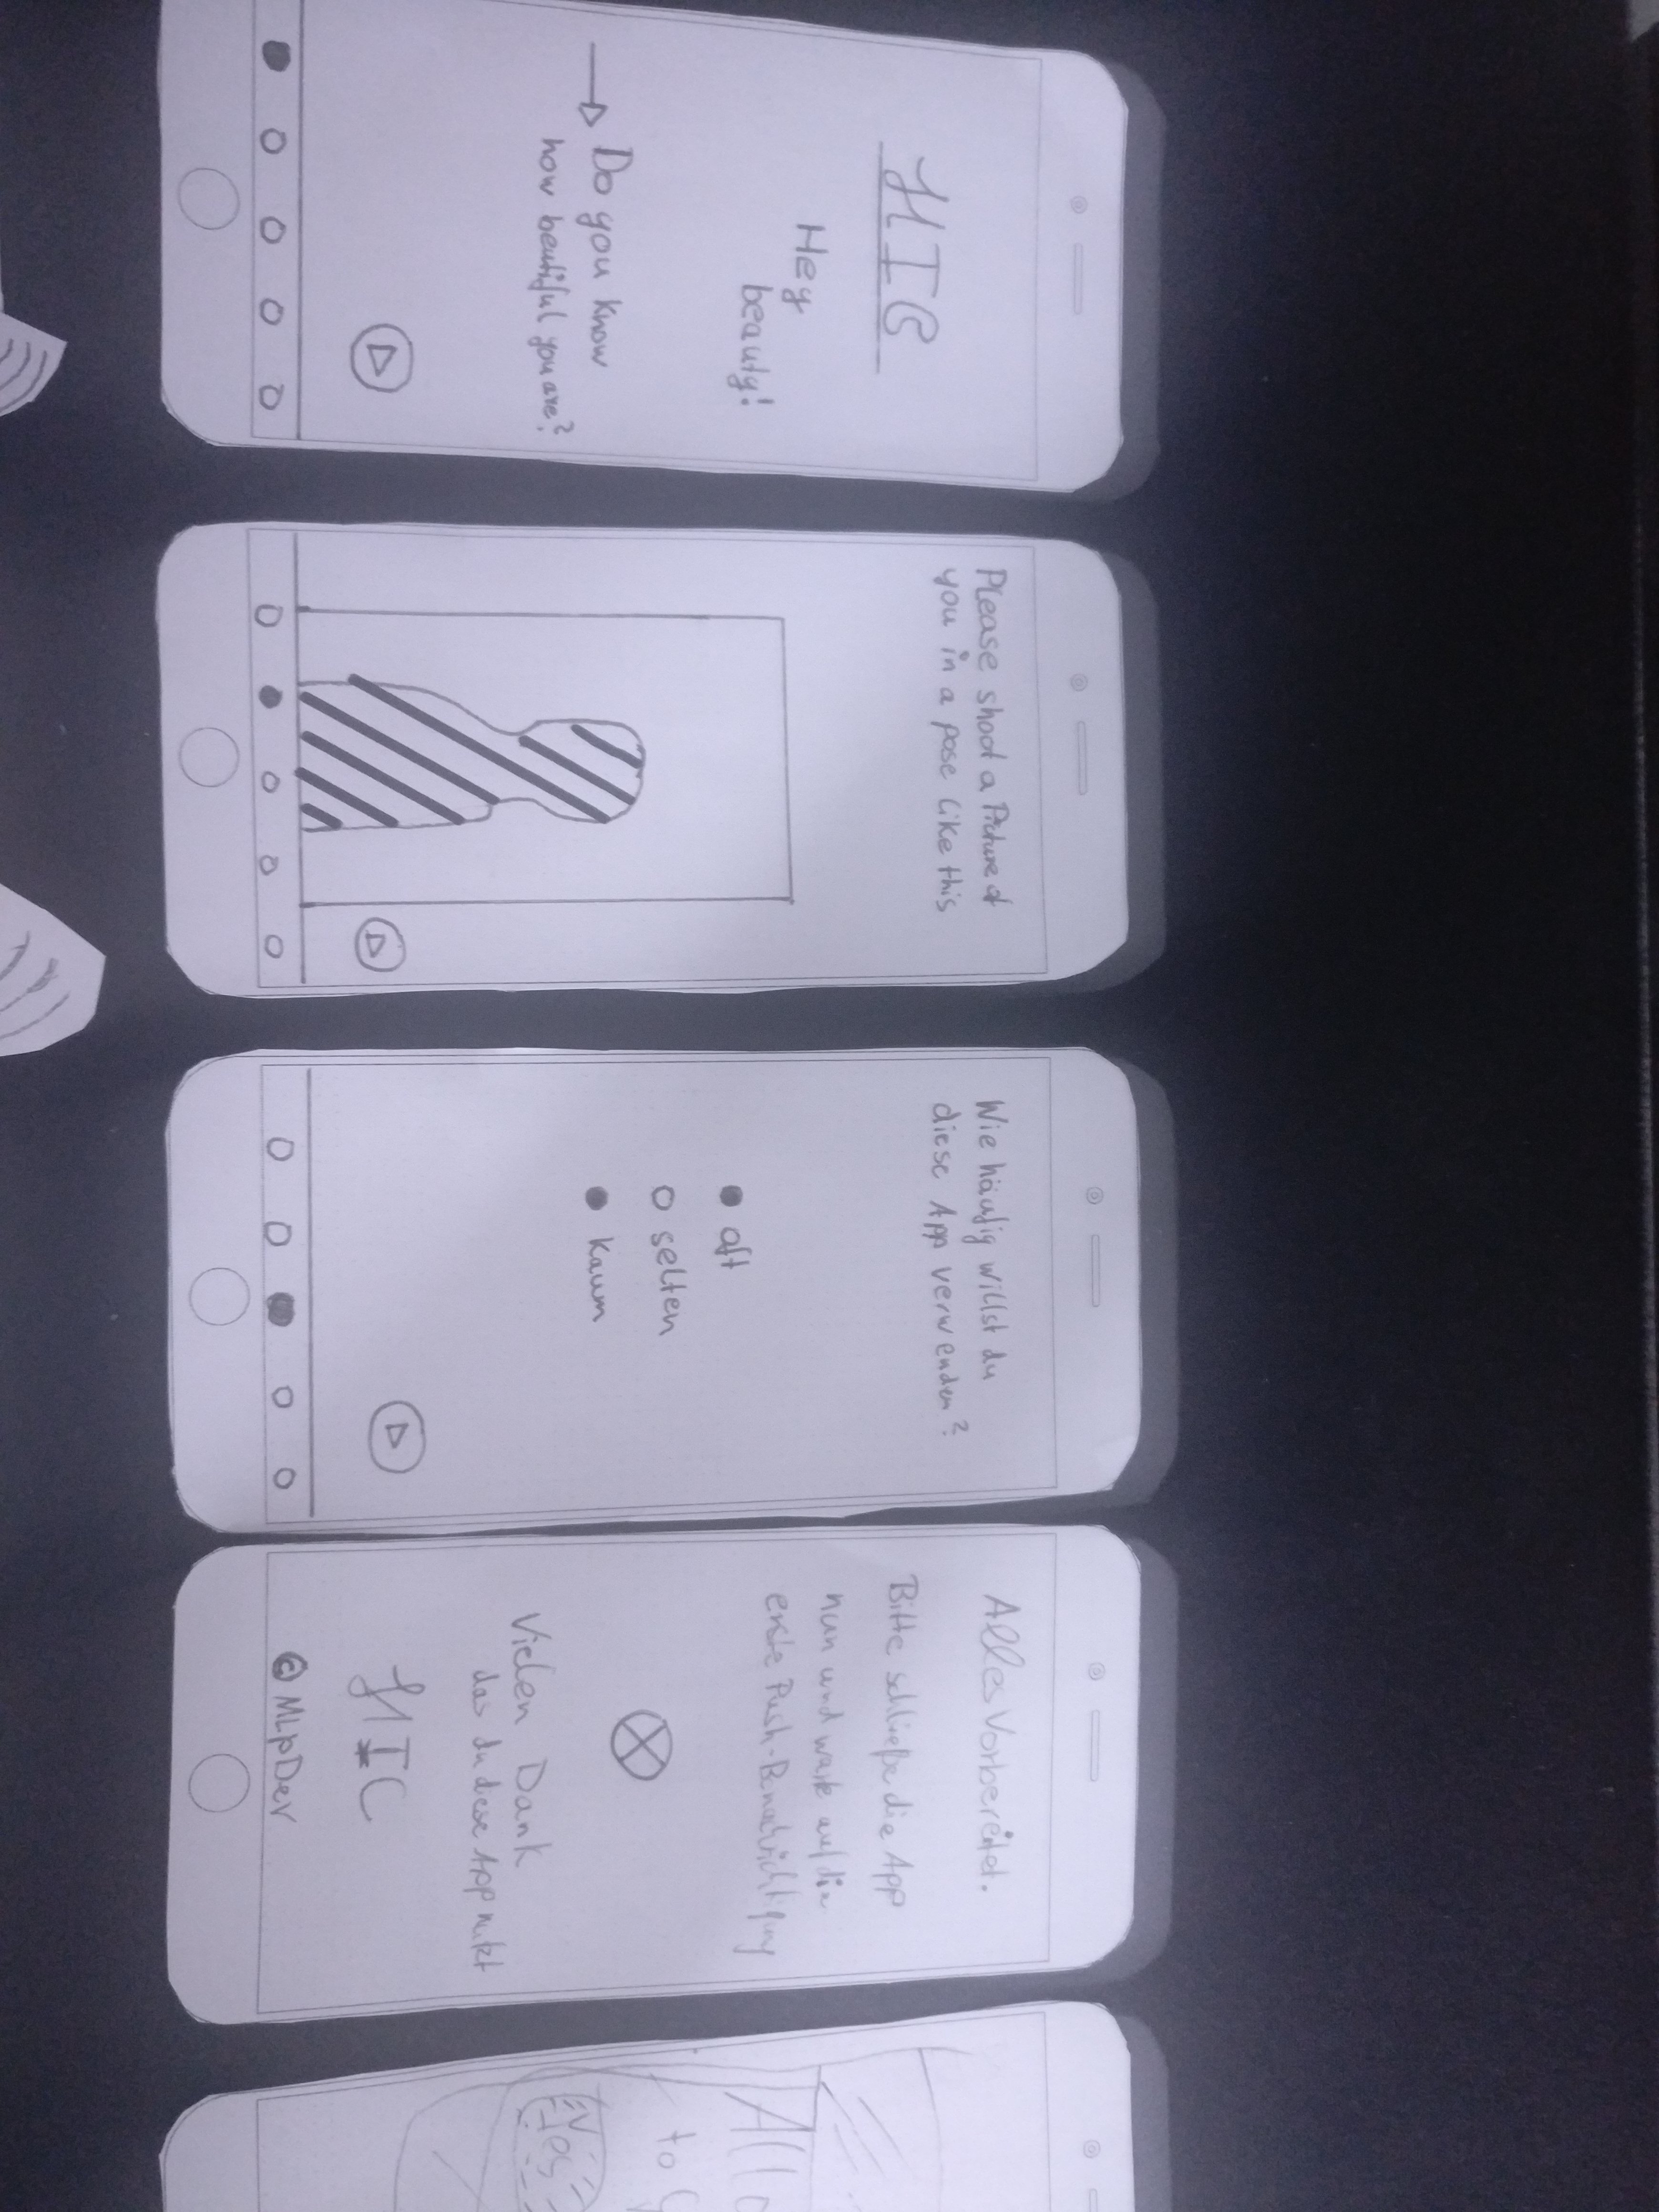 HIC
Hey
beauty!
Do you know
how beutiful you are?
Please shoot a Picture of
you in a pose like this
Wie häufig willst du
diese App verwenden?
oft
selten
kaum
Alles Vorbereitet.
Bitte schließe die App
nun und warte auf die
erste Push-Benachrichtigung
Vielen Dank
das du diese App nutzt
HIC
© MLpDev
to
Yes